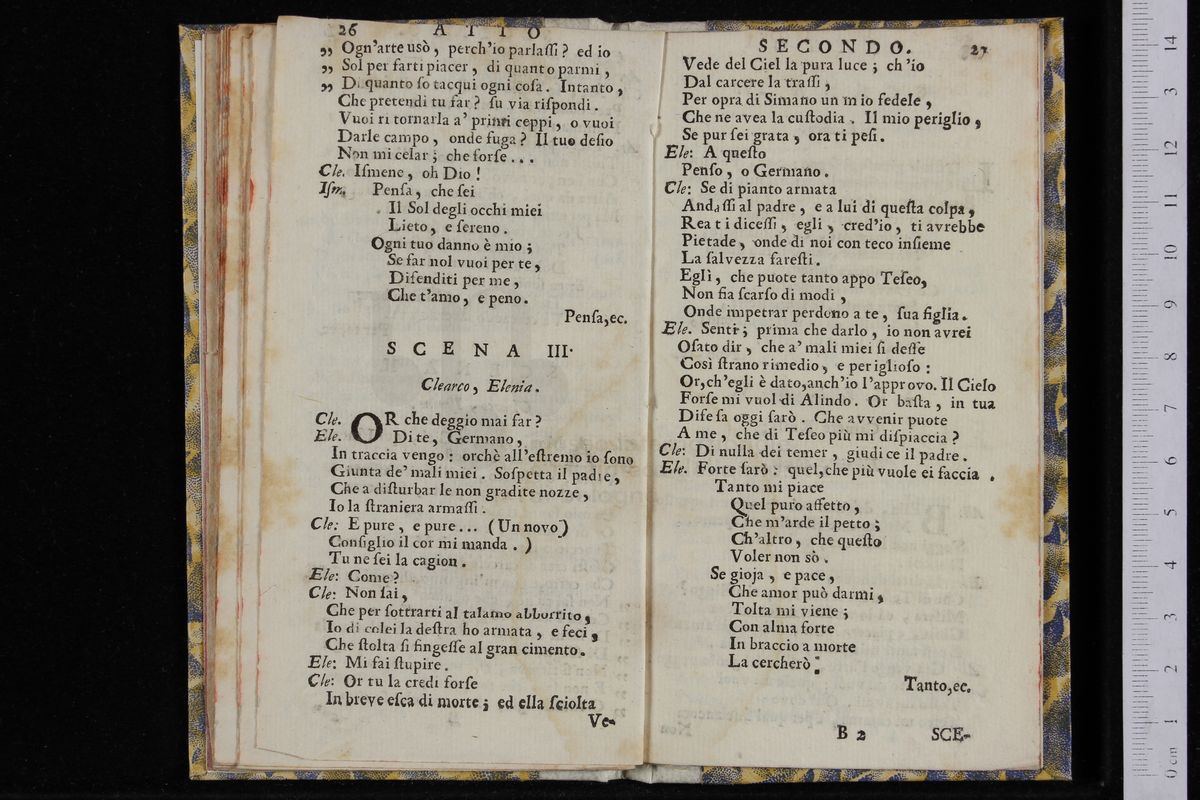 26 ATTO
„ Ogn'arte usò, perch'io parlaſſi? ed io
„ Sol per farti piacer, di quanto parmi,
„ Di quanto ſo tacqui ogni coſa. Intanto,
Che pretendi tu far? ſu via riſpondi.
Vuoi ri tornarla a' primi ceppi, o vuoi
Darle campo, onde fuga? Il tuo deſio
Non mi celar; che forſe...
Cle. Iſmene, oh Dio!
Iſm. Penſa, che ſei
Il Sol degli occhi miei
Lieto, e ſereno.
Ogni tuo danno è mio;
Se far nol vuoi per te,
Difenditi per me,
Che t'amo, e peno.
Penſa,ec.
SCENA III.
Clearco, Elenia.
Cle. OR che deggio mai far?
Ele. Di te, Germano,
In traccia vengo: orchè all'eſtremo io ſono
Giunta de' mali miei. Soſpetta il padre,
Che a diſturbar le non gradite nozze,
Io la ſtraniera armaſſi.
Cle: E pure, e pure... (Un novo)
Conſiglio il cor mi manda.)
Tu ne ſei la cagion.
Ele: Come?
Cle: Non ſai,
Che per ſottrarti al talamo abborrito,
Io di colei la deſtra ho armata, e feci,
Che ſtolta ſi fingeſſe al gran cimento.
Ele: Mi fai ſtupire.
Cle: Or tu la credi forſe
In breve eſca di morte; ed ella ſciolta
Ve-
SECONDO. 27
Vede del Ciel la pura luce; ch'io
Dal carcere la traſſi,
Per opra di Simano un mio fedele,
Che ne avea la cuſtodia. Il mio periglio,
Se pur ſei grata, ora ti peſi.
Ele: A queſto
Penſo, o Germano.
Cle: Se di pianto armata
Andaſſi al padre, e a lui di queſta colpa,
Rea ti diceſſi, egli, cred'io, ti avrebbe
Pietade, onde di noi con teco inſieme
La ſalvezza fareſti.
Eglì, che puote tanto appo Teſeo,
Non fia ſcarſo di modi,
Onde impetrar perdono a te, ſua figlia.
Ele. Senti; prima che darlo, io non avrei
Oſato dir, che a' mali miei ſi deſſe
Così ſtrano rimedio, e periglioſo:
Or,ch'egli è dato,anch'io l'approvo. Il Cielo
Forſe mi vuol di Alindo. Or baſta, in tua
Difeſa oggi ſarò. Che avvenir puote
A me, che di Teſeo più mi diſpiaccia?
Cle: Di nulla dei temer, giudice il padre.
Ele. Forte ſarò: quel,che più vuole ei faccia.
Tanto mi piace
Quel puro affetto,
Che m'arde il petto;
Ch'altro, che queſto
Voler non sò.
Se gioja, e pace,
Che amor può darmi,
Tolta mi viene;
Con alma forte
In braccio a morte
La cercherò:
Tanto,ec.
B 2 SCE-
0 cm 1 2 3 4 5 6 7 8 9 10 11 12 3 14